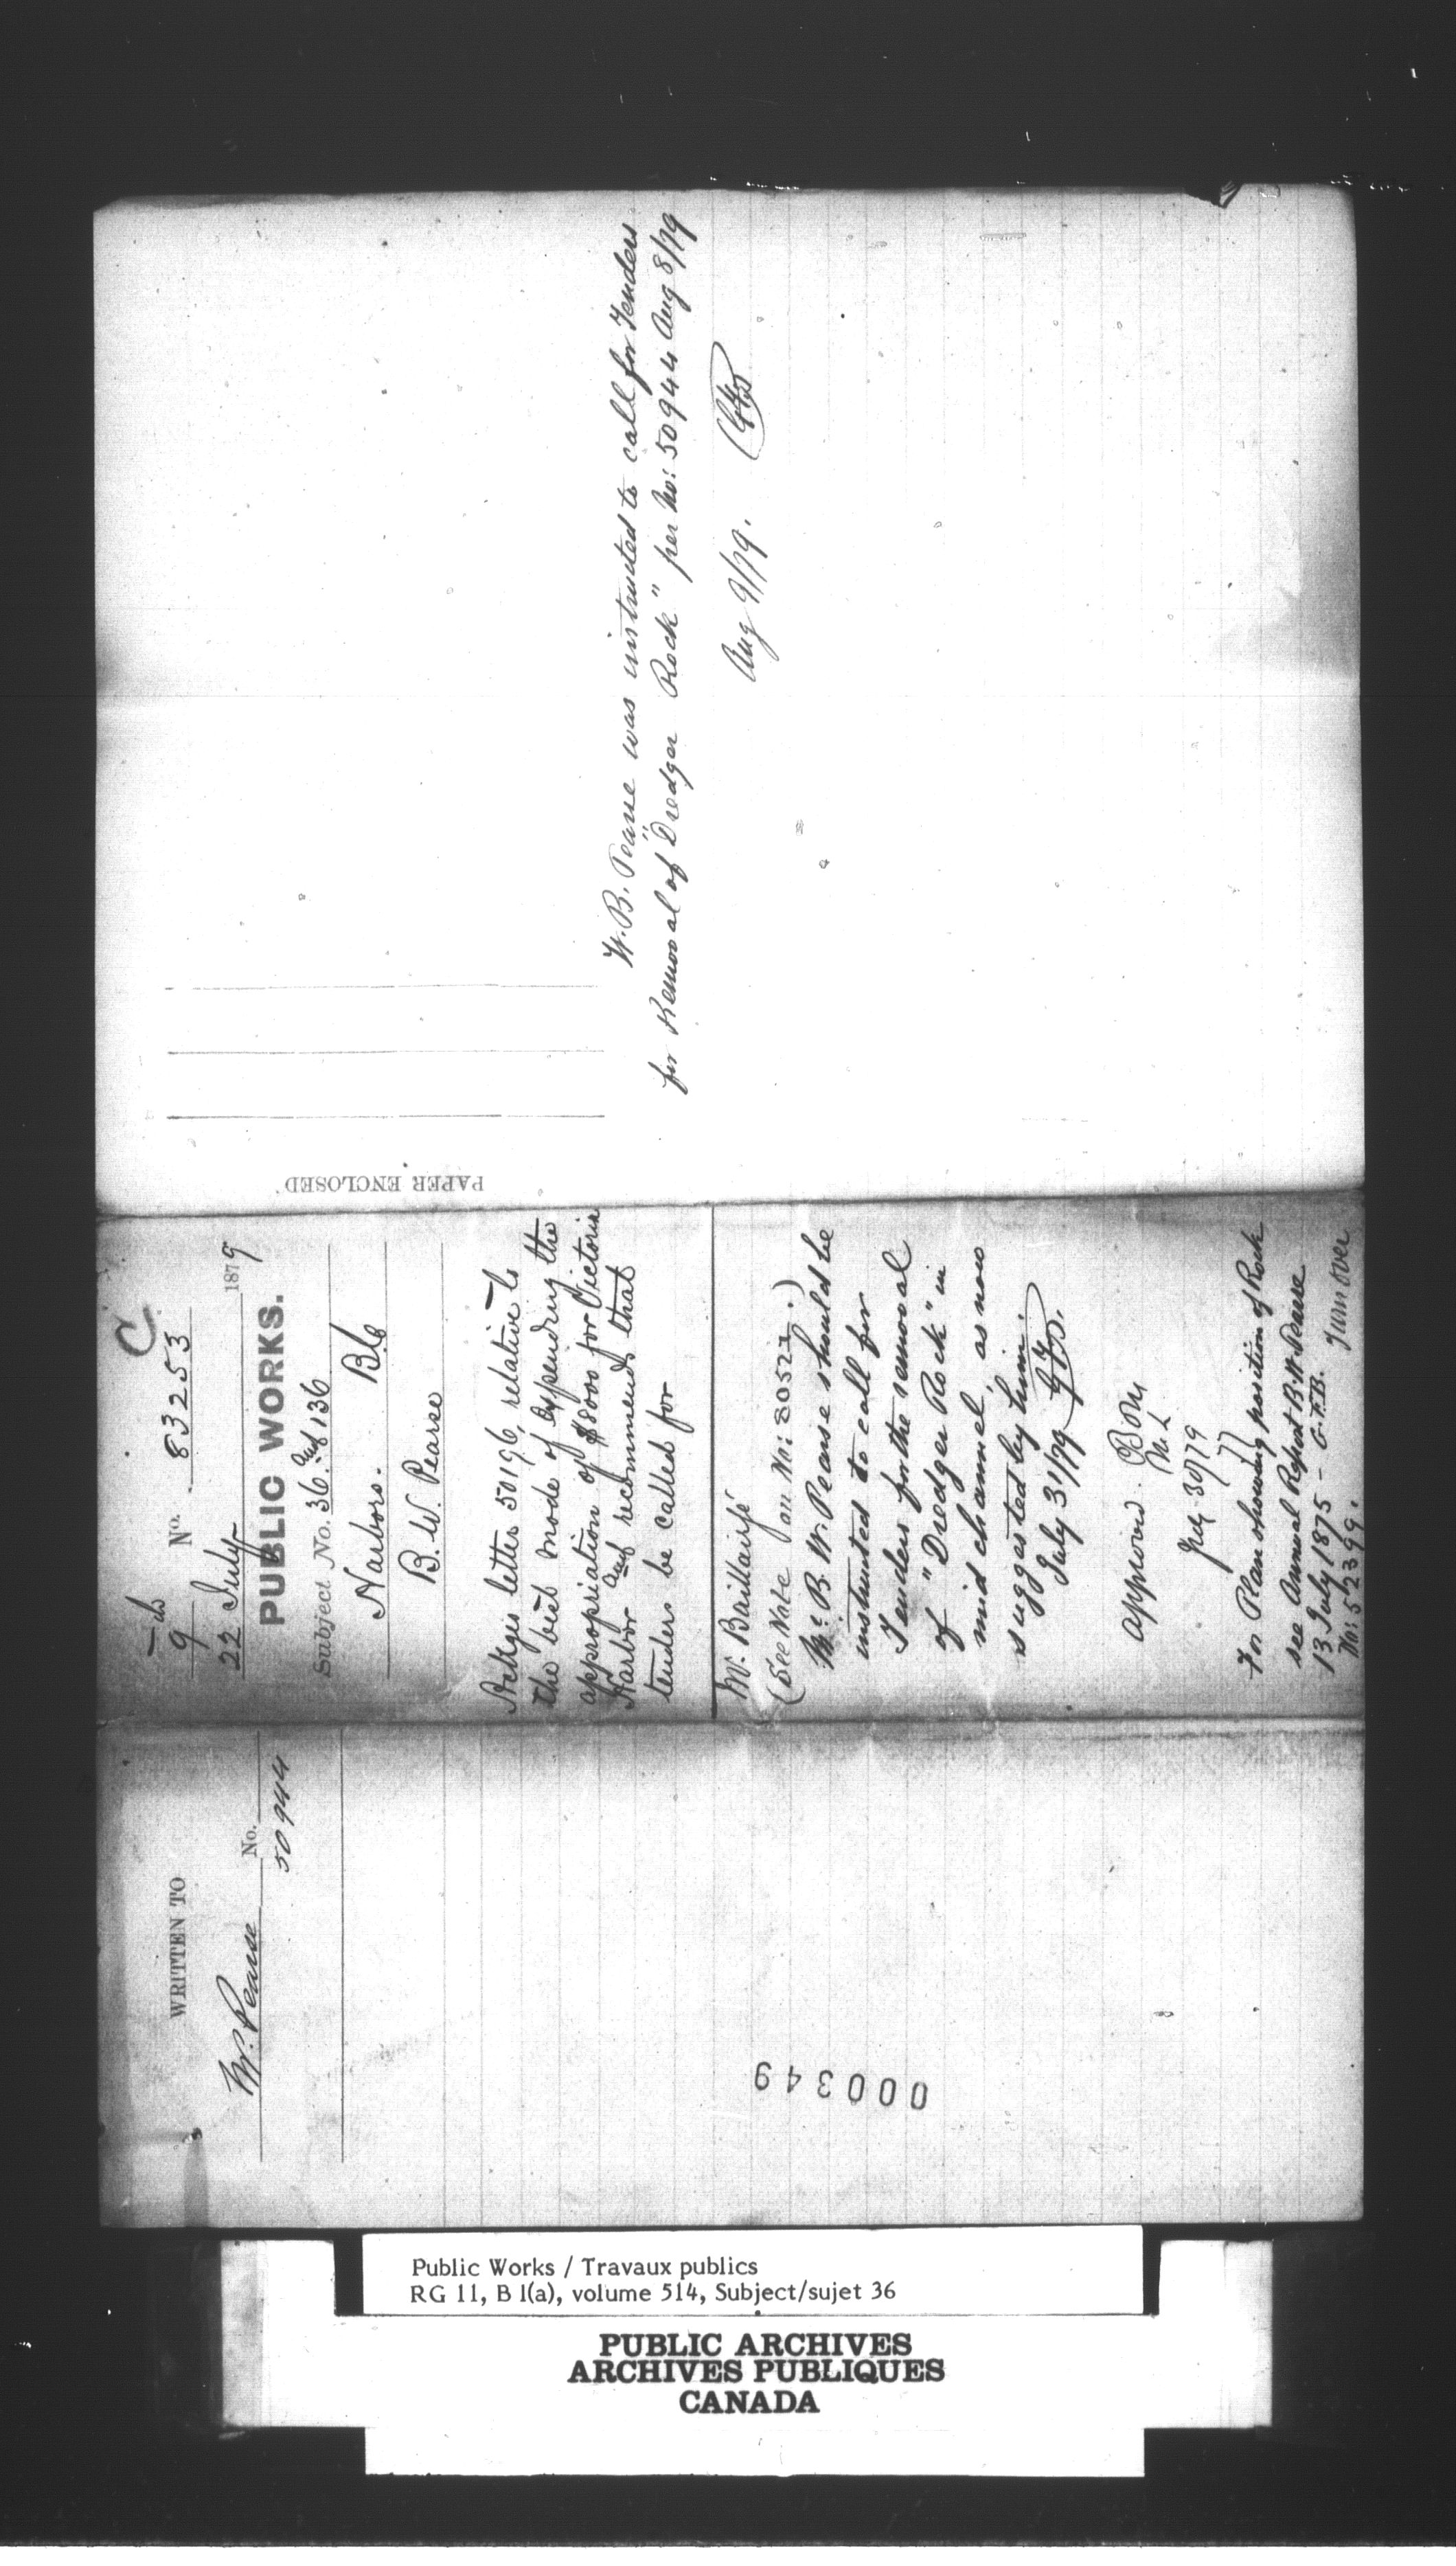 C
9 No. 83253
22 July 1879
PUBLIC WORKS.
Subject No. 36 and 136
Harbors. B.C.
B. W. Pearse
Ackges letter 50196, relative to
the best mode of expending the
appropriation of $8000 for Victoria
Harbor and recommends that
tenders be called for
Mr. Baillairgé
(See Note on No:
Mr. B. W. Pearse should be
instructed to call for
Tenders for the removal
of "Dredger Rock" in
mid channel, as now
suggested by him.
July 31/79
approved
July 30/79
For Plan showing position of Rock
see Annual Report B. W. Pearse
13 July 1875 - G.F.B.
No: 52399.
Turn over
PAPER ENCLOSED
W. B. Pearse was instructed to call for Tenders
for Removal of "Dredger Rock" per No: 50944 Aug 8/79
Aug 9/79.
WRITTEN TO
No.
Mr. Pearse 50944
000349
Public Works / Travaux publics
RG 11, B 1(a), volume 514, Subject/sujet 36
PUBLIC ARCHIVES
ARCHIVES PUBLIQUES
CANADA